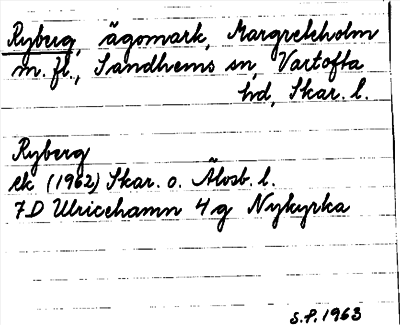 Ryberg, ägomark, Margreteholm
m. fl., Sandhems sn, Vartofta
hd, Skar. l.
Ryberg
ek (1962) Skar. o. Älvsb. l.
7D Ulricehamn 4g Nykyrka
S.P. 1963